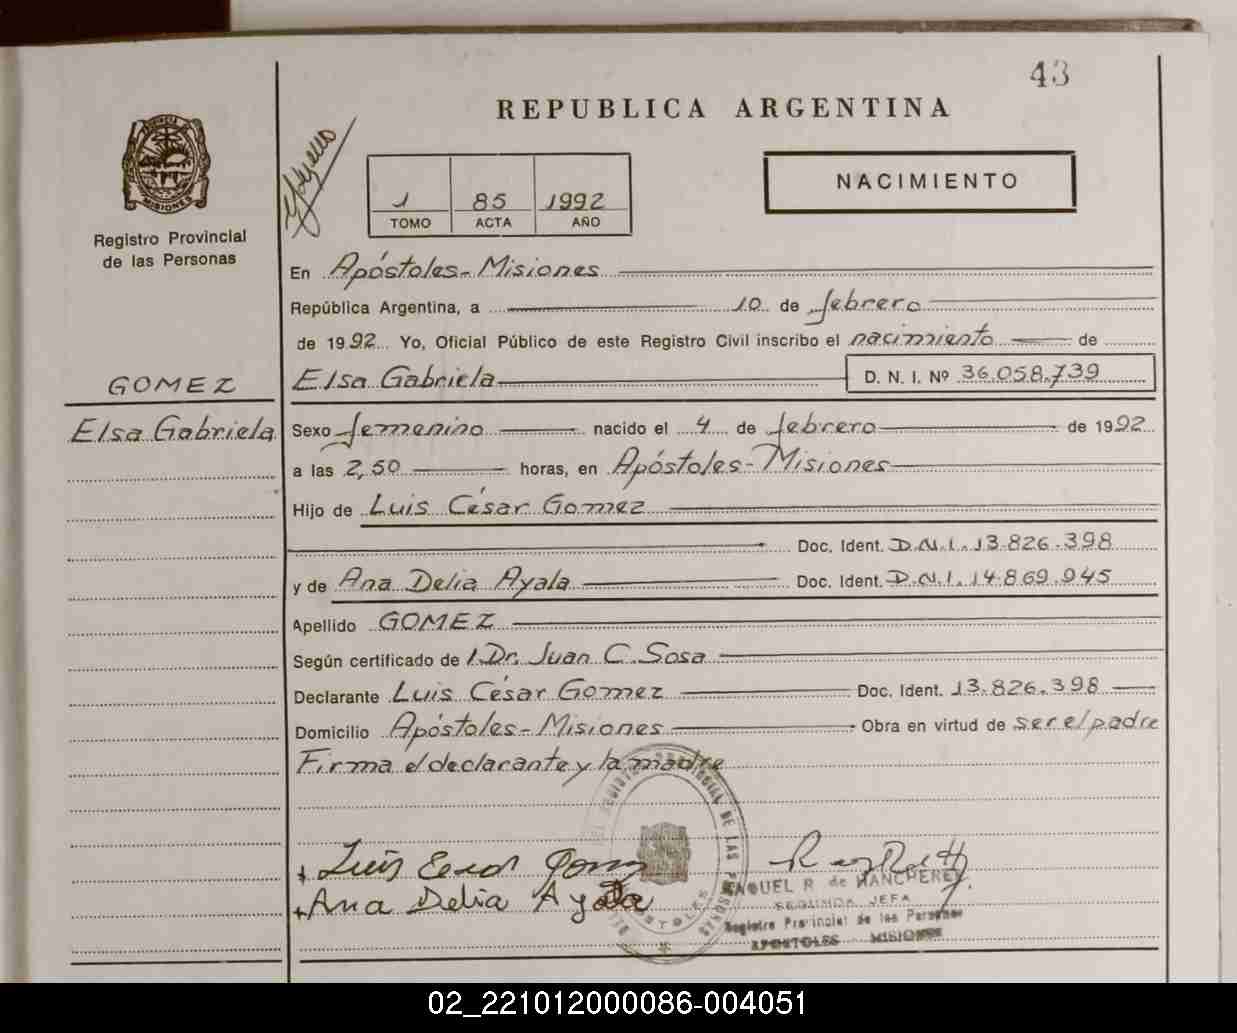 43
REPUBLICA ARGENTINA
PROVINCIA DE
MISIONES
Registro Provincial
de las Personas
1 85 1992
TOMO ACTA AÑO
NACIMIENTO
En Apóstoles-Misiones
República Argentina, a 10 de febrero
de 1992 Yo, Oficial Público de este Registro Civil inscribo el nacimiento de
GOMEZ
Elsa Gabriela D. N. I. Nº 36.058.739
Elsa Gabriela
Sexo femenino nacido el 4 de febrero de 1992
a las 2,50 horas, en Apóstoles-Misiones
Hijo de Luis César Gomez
Doc. Ident. D.N.I. 13.826.398
y de Ana Delia Ayala Doc. Ident. D.N.I. 14.869.945
Apellido GOMEZ
Según certificado de Dr. Juan C. Sosa
Declarante Luis César Gomez Doc. Ident. 13.826.398
Domicilio Apóstoles-Misiones Obra en virtud de ser el padre
Firma el declarante y la madre
Luis
Ana Delia Ayala
RAQUEL R. de MANCHERE
SEGUNDA JEFA
Registro Provincial de las Personas
APOSTOLES MISIONES
02_221012000086-004051